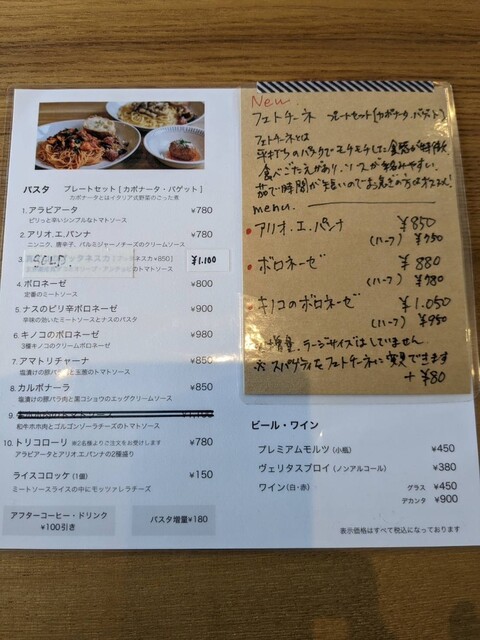 パスタ　プレートセット [ カポナータ・バゲット ]
カポナータとはイタリア式野菜のごった煮
1. アラビアータ ¥780
ピリッと辛いシンプルなトマトソース
2. アリオ.エ.パンナ ¥780
ニンニク、唐辛子、パルミジャーノチーズのクリームソース
3.
SOLD
¥1.100
4. ボロネーゼ ¥800
定番のミートソース
5. ナスのピリ辛ボロネーゼ ¥900
辛味の効いたミートソースとナスのパスタ
6. キノコのボロネーゼ ¥980
3種キノコのクリームボロネーゼ
7. アマトリチャーナ ¥850
塩漬けの豚バラ肉と玉葱のトマトソース
8. カルボナーラ ¥850
塩漬けの豚バラ肉と黒コショウのエッグクリームソース
9.
和牛ホホ肉のとゴルゴンゾーラチーズのトマトソース
10. トリコローリ ※2名様よりご注文をお受けします ¥780
アラビアータとアリオ.エ.パンナの2種盛り
ライスコロッケ (1個) ¥150
ミートソースライスの中にモッツァレラチーズ
アフターコーヒー・ドリンク
¥100引き
パスタ増量¥180
New
フェトチーネ プレートセット[カポナータ.バゲット]
フェトチーネとは
平打ちのパスタでモチモチした食感が特徴
食べごたえがあり、ソースが絡みやすい.
茹で時間が短いのでお急ぎの方にオススメ!
menu.
アリオ.エ.パンナ ¥850
(ハーフ) ¥750
ボロネーゼ ¥880
(ハーフ) ¥780
キノコのボロネーゼ ¥1.050
(ハーフ) ¥950
増量.ラージサイズはしていません
※ スパゲティをフェトチーネに変更できます
+ ¥80
ビール・ワイン
プレミアムモルツ (小瓶) ¥450
ヴェリタスブロイ (ノンアルコール) ¥380
ワイン (白・赤) グラス ¥450
デカンタ ¥900
表示価格はすべて税込になっております